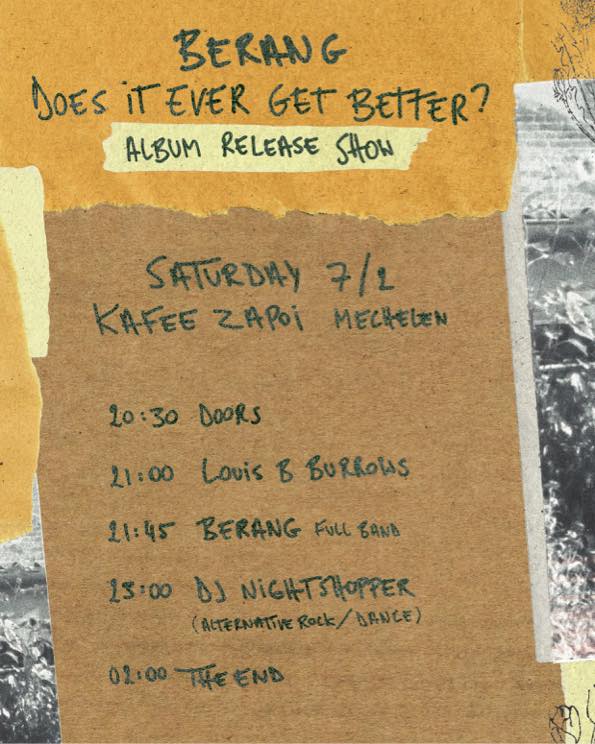 BERANG
DOES IT EVER GET BETTER?
ALBUM RELEASE SHOW
SATURDAY 7/2
KAFEE ZAPOI MECHELEN
20:30 DOORS
21:00 LOUIS B BURROWS
21:45 BERANG FULL BAND
23:00 DJ NIGHTSHOPPER
(ALTERNATIVE ROCK/DANCE)
02:00 THE END